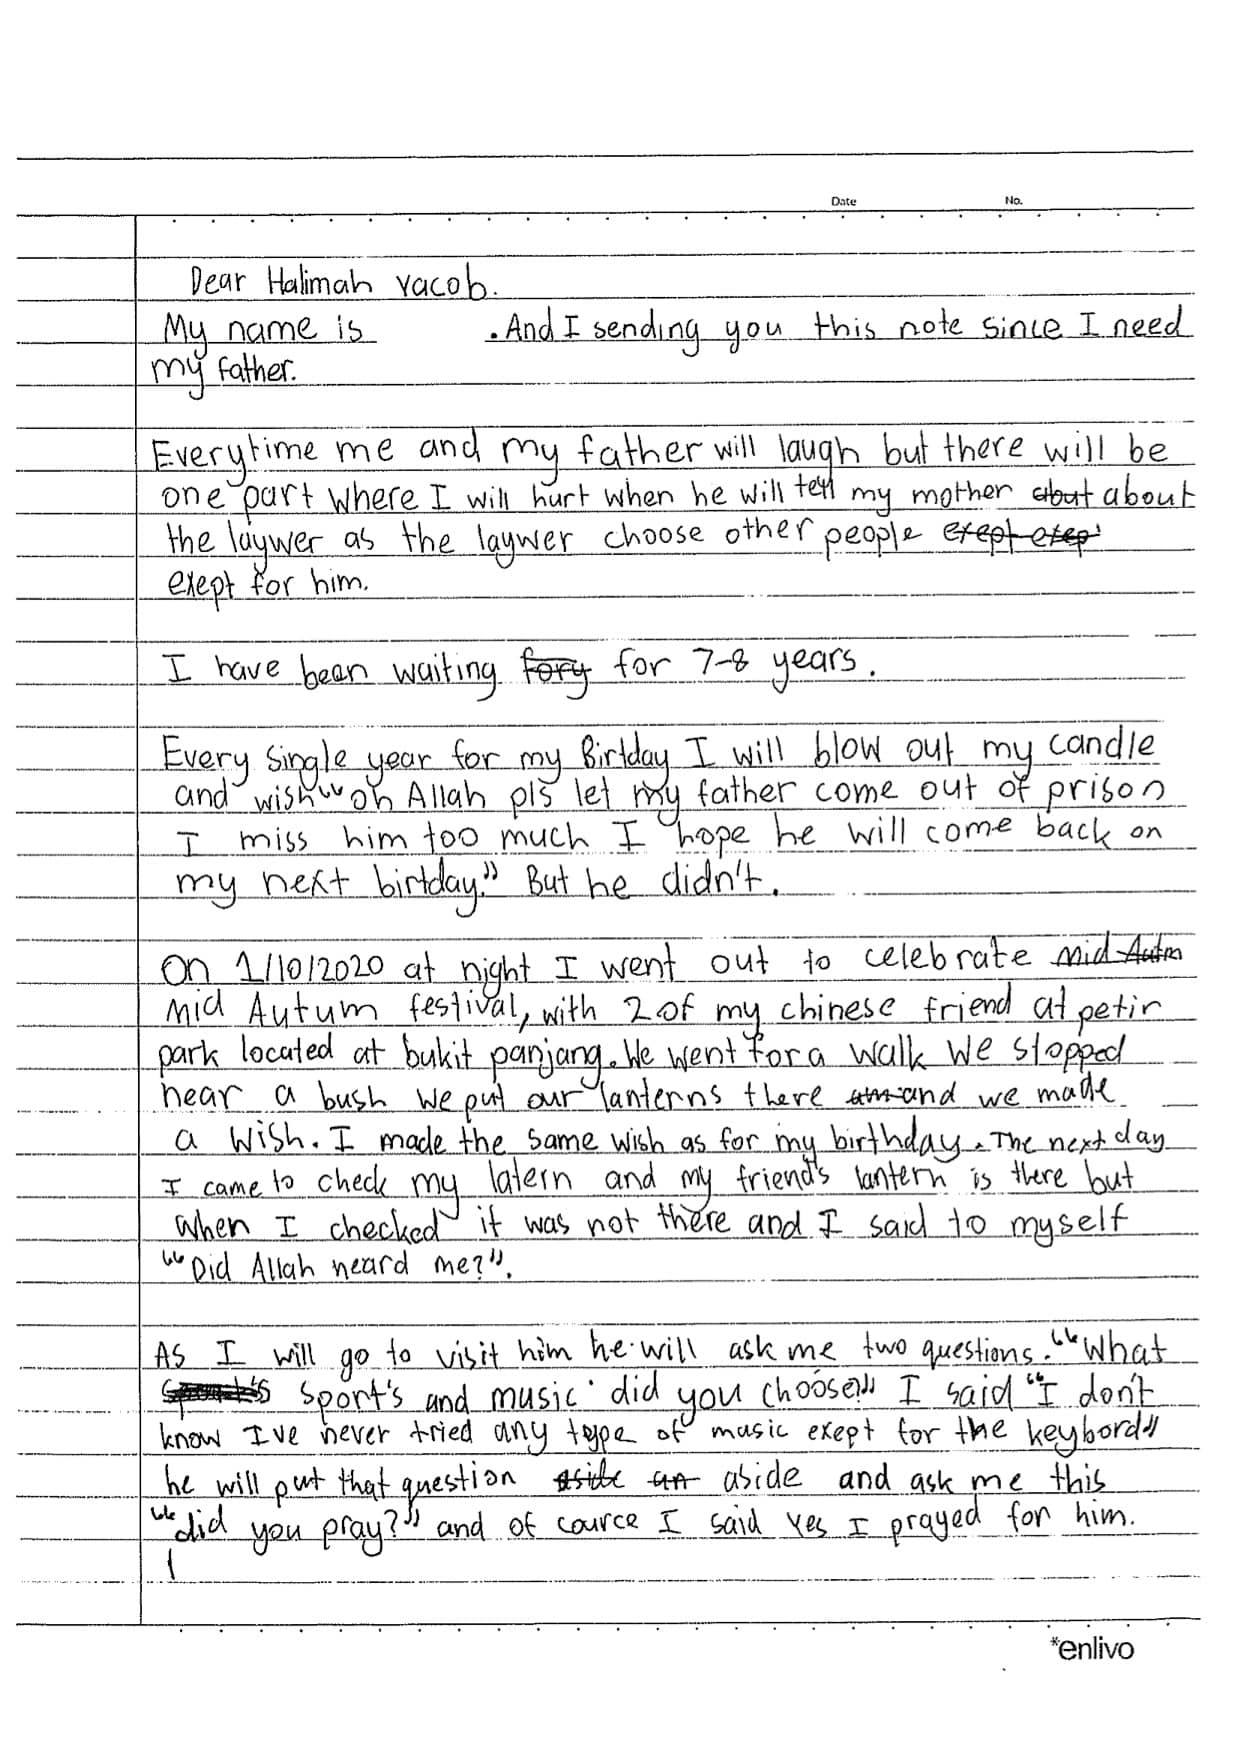 Date No.
Dear Halimah yacob.
My name is .And I sending you this note since I need
my father.
Everytime me and my father will laugh but there will be
one part where I will hurt when he will tell my mother about about
the laywer as the laywer choose other people exept exep
exept for him.
I have been waiting fory for 7-8 years.
Every single year for my Birtday I will blow out my candle
and wish “oh Allah pls let my father come out of prison
I miss him too much I hope he will come back on
my next birtday.” But he didn't.
On 1/10/2020 at night I went out to celebrate mid Autm
mid Autum festival, with 2 of my chinese friend at petir
park located at bukit panjang. We went for a walk we stopped
near a bush we put our lanterns there and we made
a wish. I made the same wish as for my birthday. The next day
I came to check my latern and my friend's lantern is there but
when I checked it was not there and I said to myself
“Did Allah heard me?”.
As I will go to visit him he will ask me two questions. “What
sport's and music did you choose” I said “I don't
know I've never tried any type of music exept for the keybord”
he will put that question aside an aside and ask me this
“did you pray?” and of cource I said yes I prayed for him.
*enlivo